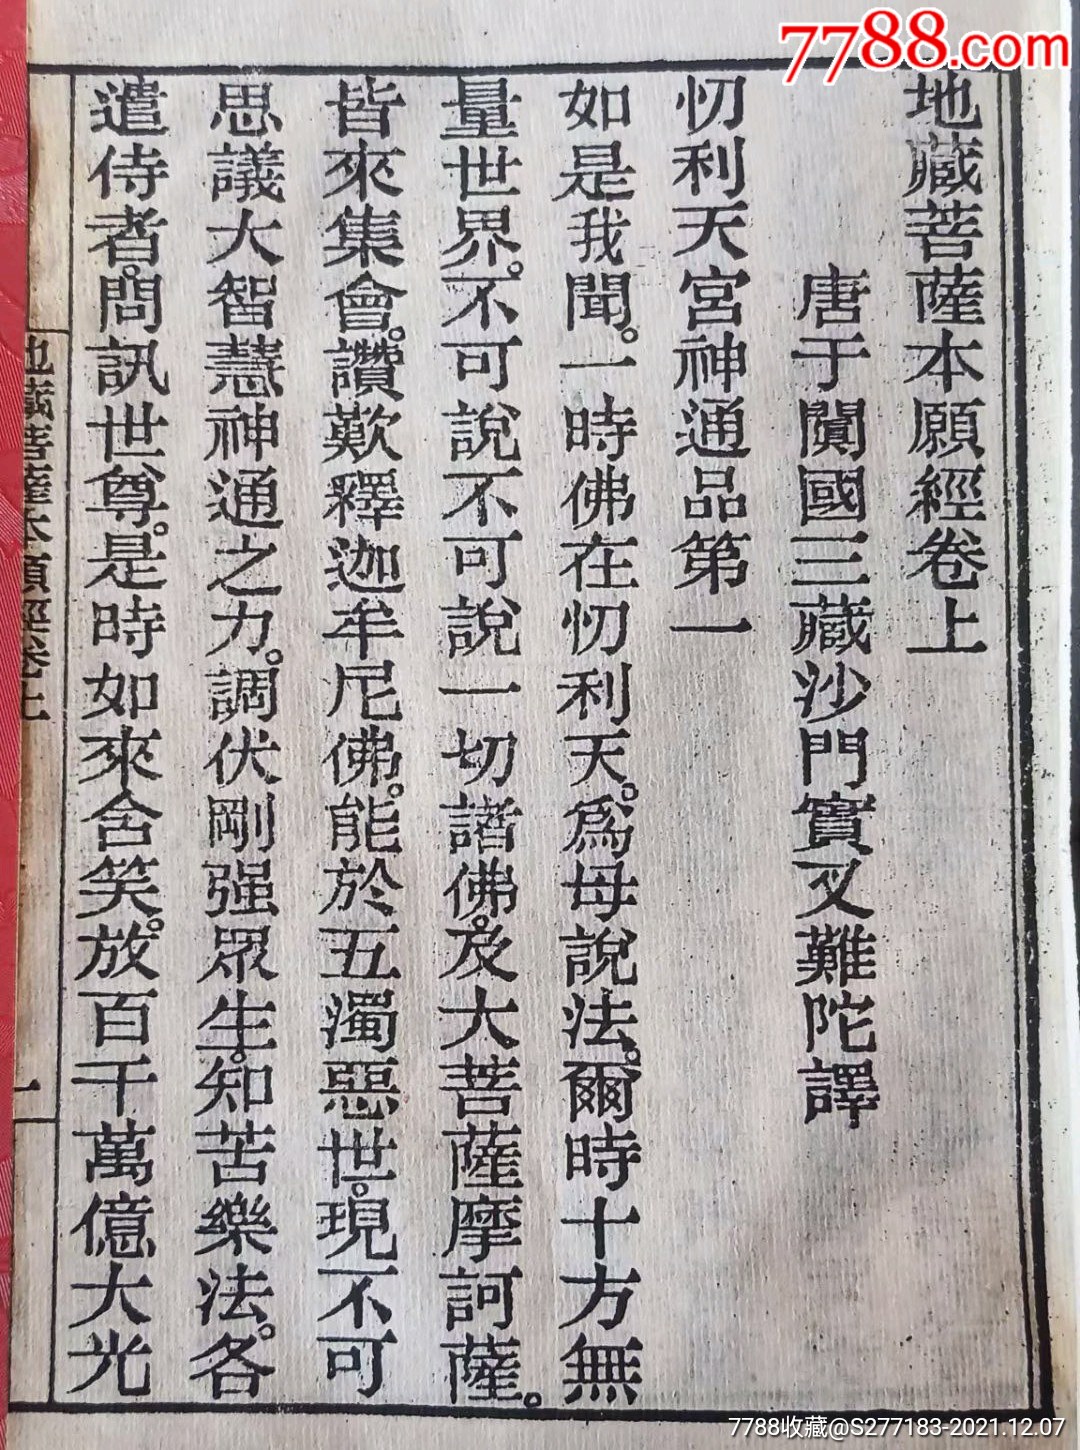 7788.com
地藏菩薩本願經卷上
唐于闐國三藏沙門實叉難陀譯
忉利天宮神通品第一
如是我聞。一時佛在忉利天。爲母說法。爾時十方無
量世界。不可說不可說一切諸佛。及大菩薩摩訶薩。
皆來集會。讚歎釋迦牟尼佛。能於五濁惡世。現不可
思議大智慧神通之力。調伏剛强眾生。知苦樂法。各
遣侍者。問訊世尊。是時如來含笑。放百千萬億大光
地藏菩薩本願經卷上
一
7788收藏@S277183-2021.12.07